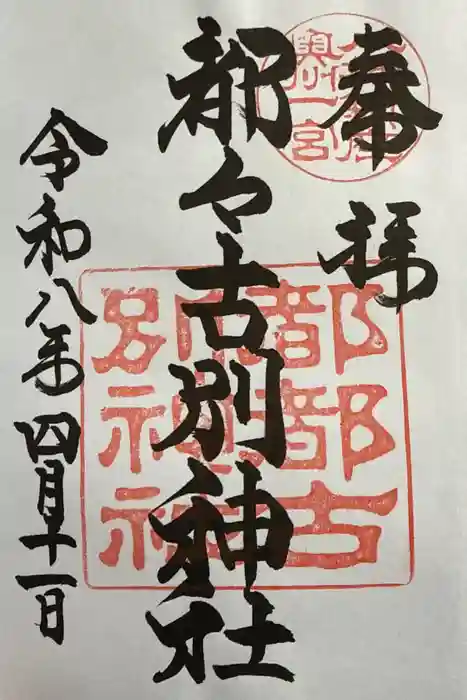 奉拝
都々古別神社
令和八年四月十一日
奥州一宮
都都古別神社